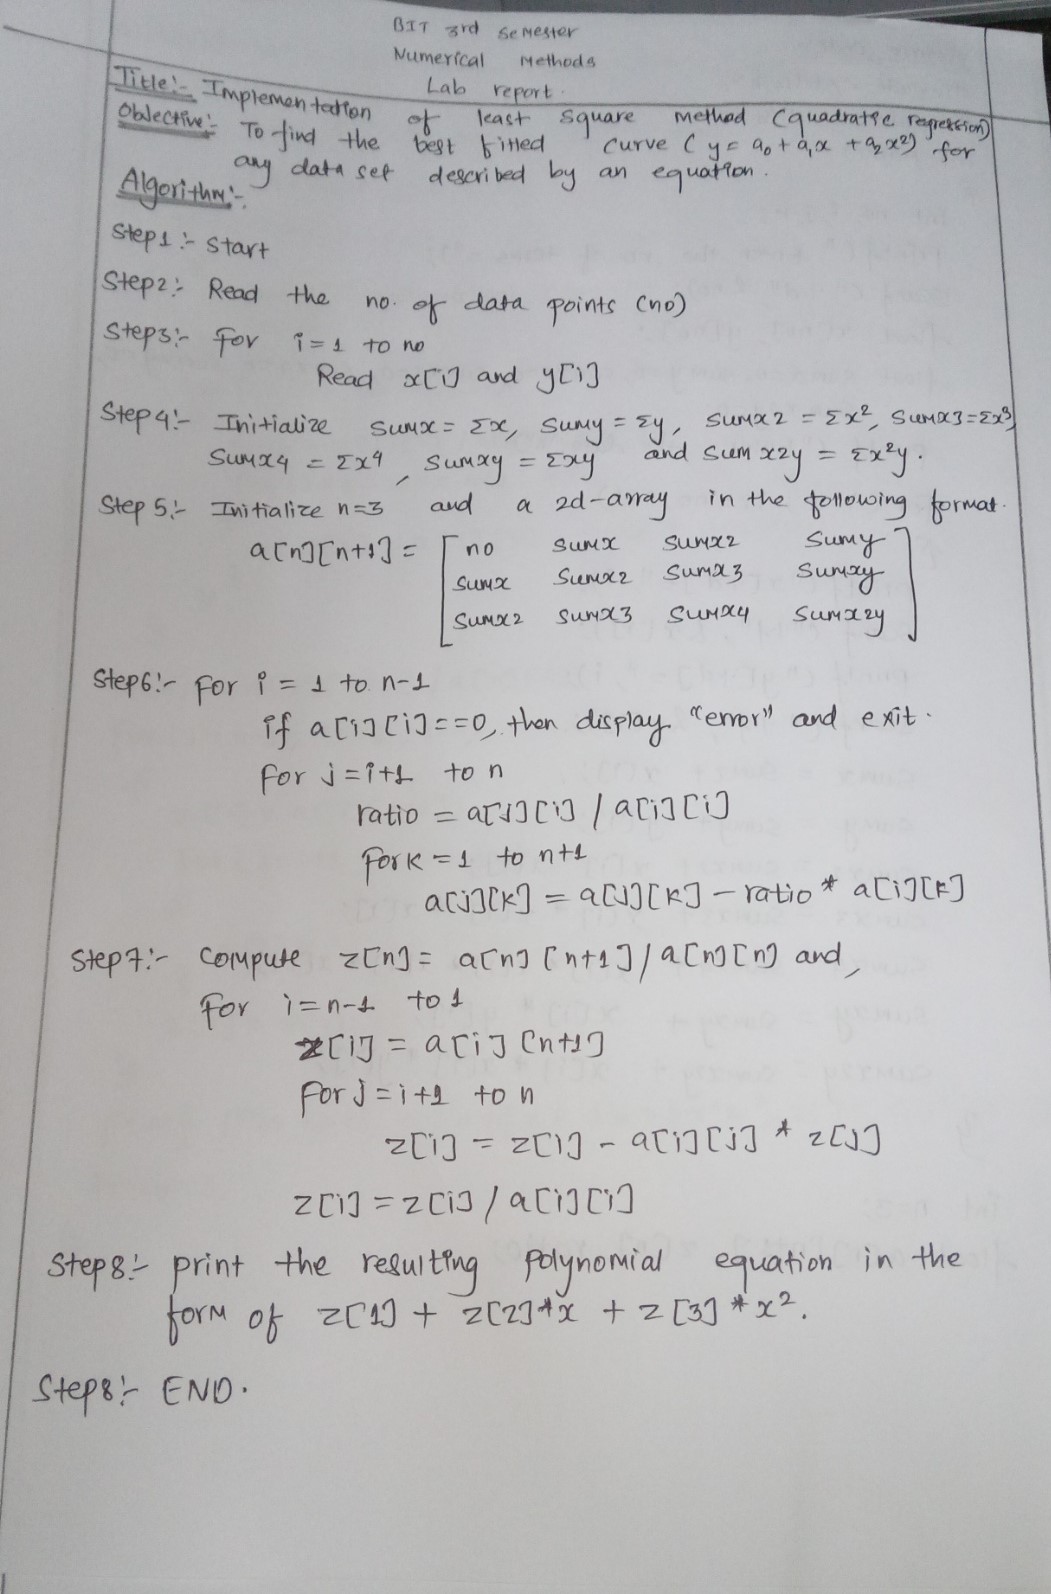 BIT 3rd Semester
Numerical Methods
Lab report.
Title:- Implementation of least square method (quadratic regression)
Objective:- To find the best fitted curve (y = a₀ + a₁x + a₂x²) for
any data set described by an equation.
Algorithm:-
Step1:- Start
Step2:- Read the no. of data points (no)
Step3:- For i=1 to no
Read x[i] and y[i]
Step4:- Initialize sumx = Σx, sumy = Σy, sumx2 = Σx², sumx3=Σx³
sumx4 = Σx4, sumxy = Σxy and sum x2y = Σx²y.
Step 5:- Initialize n=3 and a 2d-array in the following format.
a[n][n+1] = [ no sumx sumx2 sumy
sumx sumx2 sumx3 sumxy
sumx2 sumx3 sumx4 sumx2y ]
Step6:- for i = 1 to n-1
if a[i][i]==0, then display "error" and exit.
For j=i+1 to n
ratio = a[j][i] / a[i][i]
For k=1 to n+1
a[j][k] = a[j][k] - ratio * a[i][k]
Step7:- Compute z[n] = a[n][n+1]/a[n][n] and,
For i=n-1 to 1
z[i] = a[i][n+1]
For j=i+1 to n
z[i] = z[i] - a[i][j] * z[j]
z[i] = z[i] / a[i][i]
Step8:- print the resulting Polynomial equation in the
form of z[1] + z[2]*x + z[3]*x².
Step8:- END.